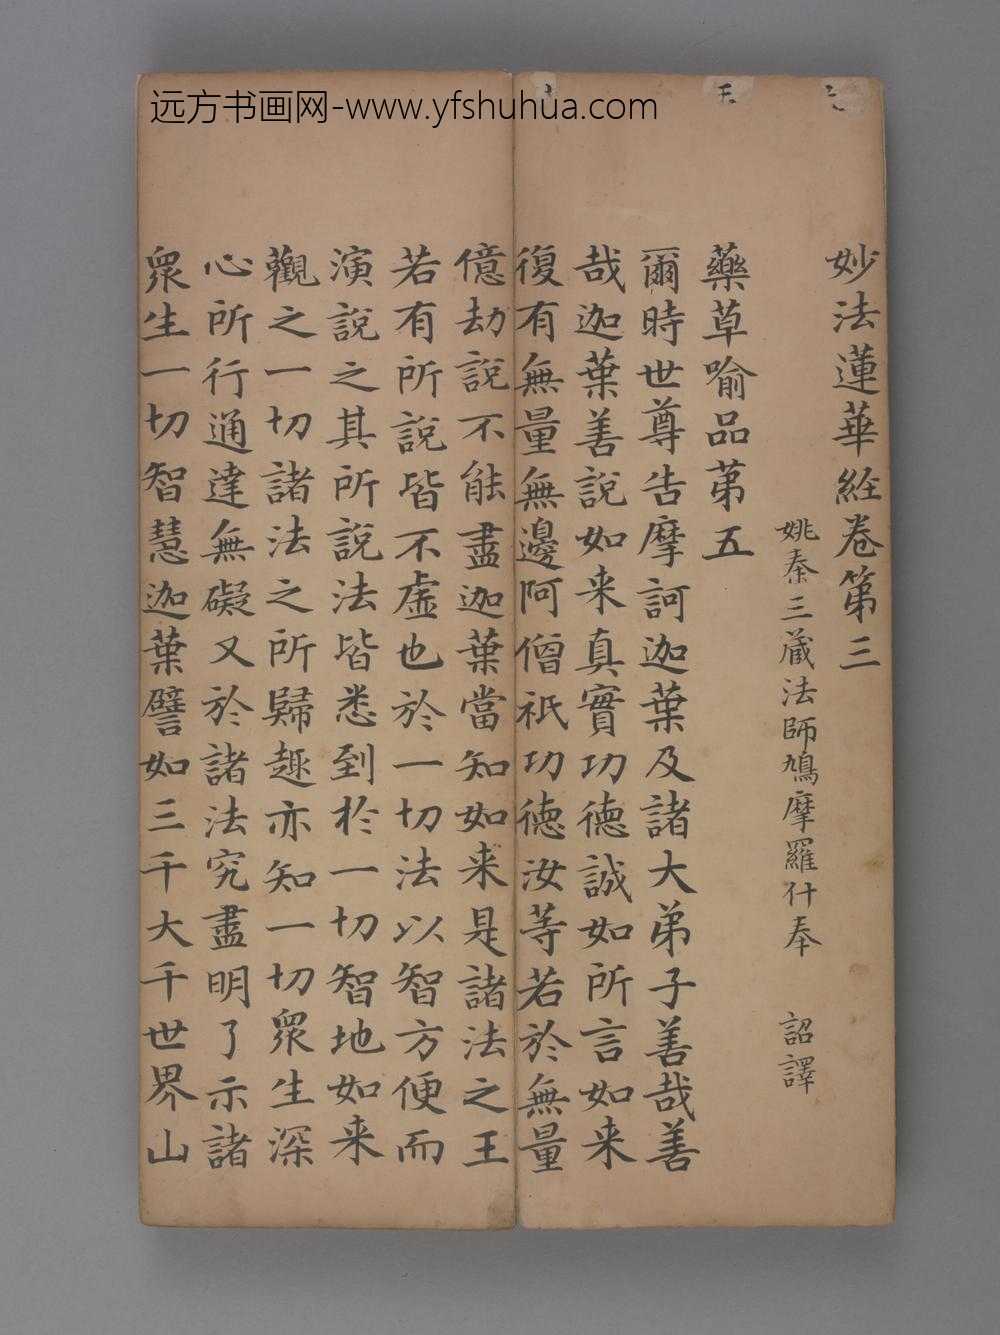 远方书画网-www.yfshuhua.com
妙法蓮華經卷第三
姚秦三藏法師鳩摩羅什奉 詔譯
藥草喻品苐五
爾時世尊告摩訶迦葉及諸大弟子善哉善
哉迦葉善說如来真實功德誠如所言如来
復有無量無邊阿僧祇功德汝等若於無量
億劫說不能盡迦葉當知如来是諸法之王
若有所說皆不虛也於一切法以智方便而
演說之其所說法皆悉到於一切智地如来
觀之一切諸法之所歸趣亦知一切眾生深
心所行通達無礙又於諸法究盡明了示諸
眾生一切智慧迦葉譬如三千大千世界山